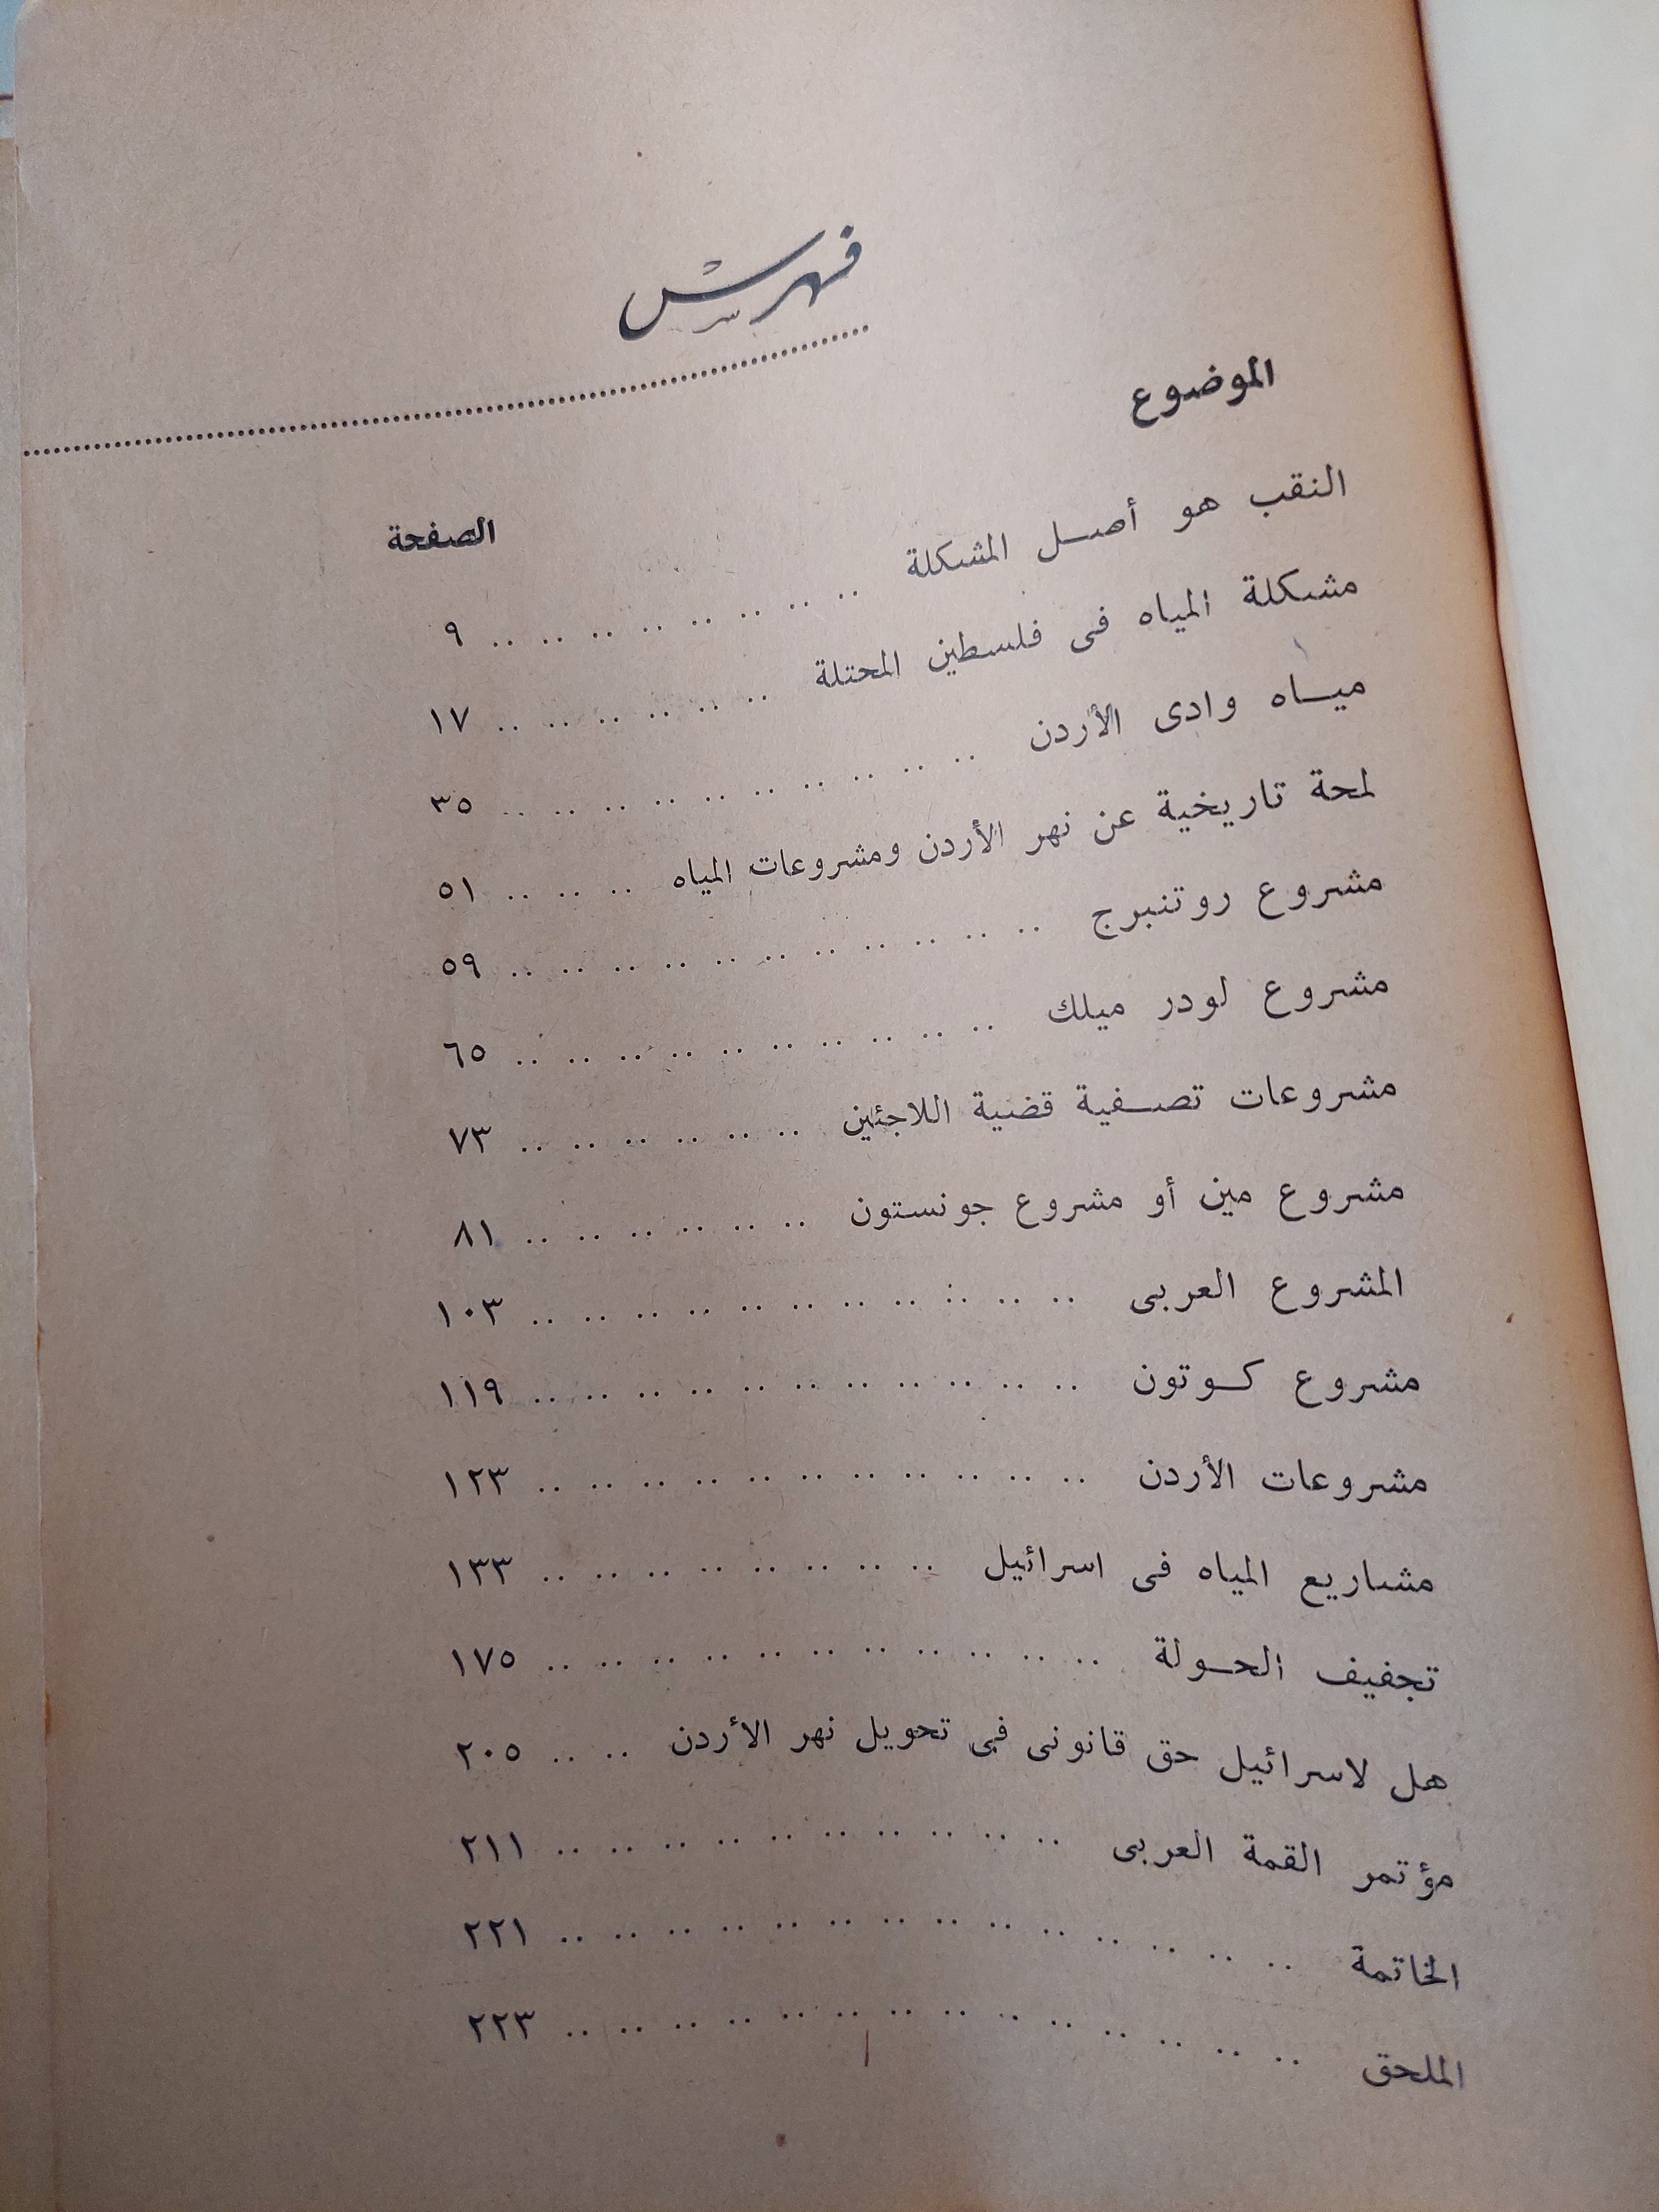 فهرس
الموضوع
الصفحة
النقب هو أصل المشكلة .. .. .. .. .. .. .. .. ٩
مشكلة المياه فى فلسطين المحتلة .. .. .. .. .. .. ١٧
مياه وادى الأردن .. .. .. .. .. .. .. .. .. .. ٣٥
لمحة تاريخية عن نهر الأردن ومشروعات المياه .. .. .. ٥١
مشروع روتنبرج .. .. .. .. .. .. .. .. .. .. .. ٥٩
مشروع لودر ميلك .. .. .. .. .. .. .. .. .. .. ٦٥
مشروعات تصفية قضية اللاجئين .. .. .. .. .. .. ٧٣
مشروع مين أو مشروع جونستون .. .. .. .. .. .. ٨١
المشروع العربى .. .. .. .. .. .. .. .. .. .. .. ١٠٣
مشروع كوتون .. .. .. .. .. .. .. .. .. .. .. ١١٩
مشروعات الأردن .. .. .. .. .. .. .. .. .. .. .. ١٢٣
مشاريع المياه فى اسرائيل .. .. .. .. .. .. .. .. ١٣٣
تجفيف الحولة .. .. .. .. .. .. .. .. .. .. .. ١٧٥
هل لاسرائيل حق قانونى فى تحويل نهر الأردن .. .. ٢٠٥
مؤتمر القمة العربى .. .. .. .. .. .. .. .. .. .. ٢١١
الخاتمة .. .. .. .. .. .. .. .. .. .. .. .. .. .. ٢٢١
الملحق .. .. .. .. .. .. .. .. .. .. .. .. .. .. ٢٢٣